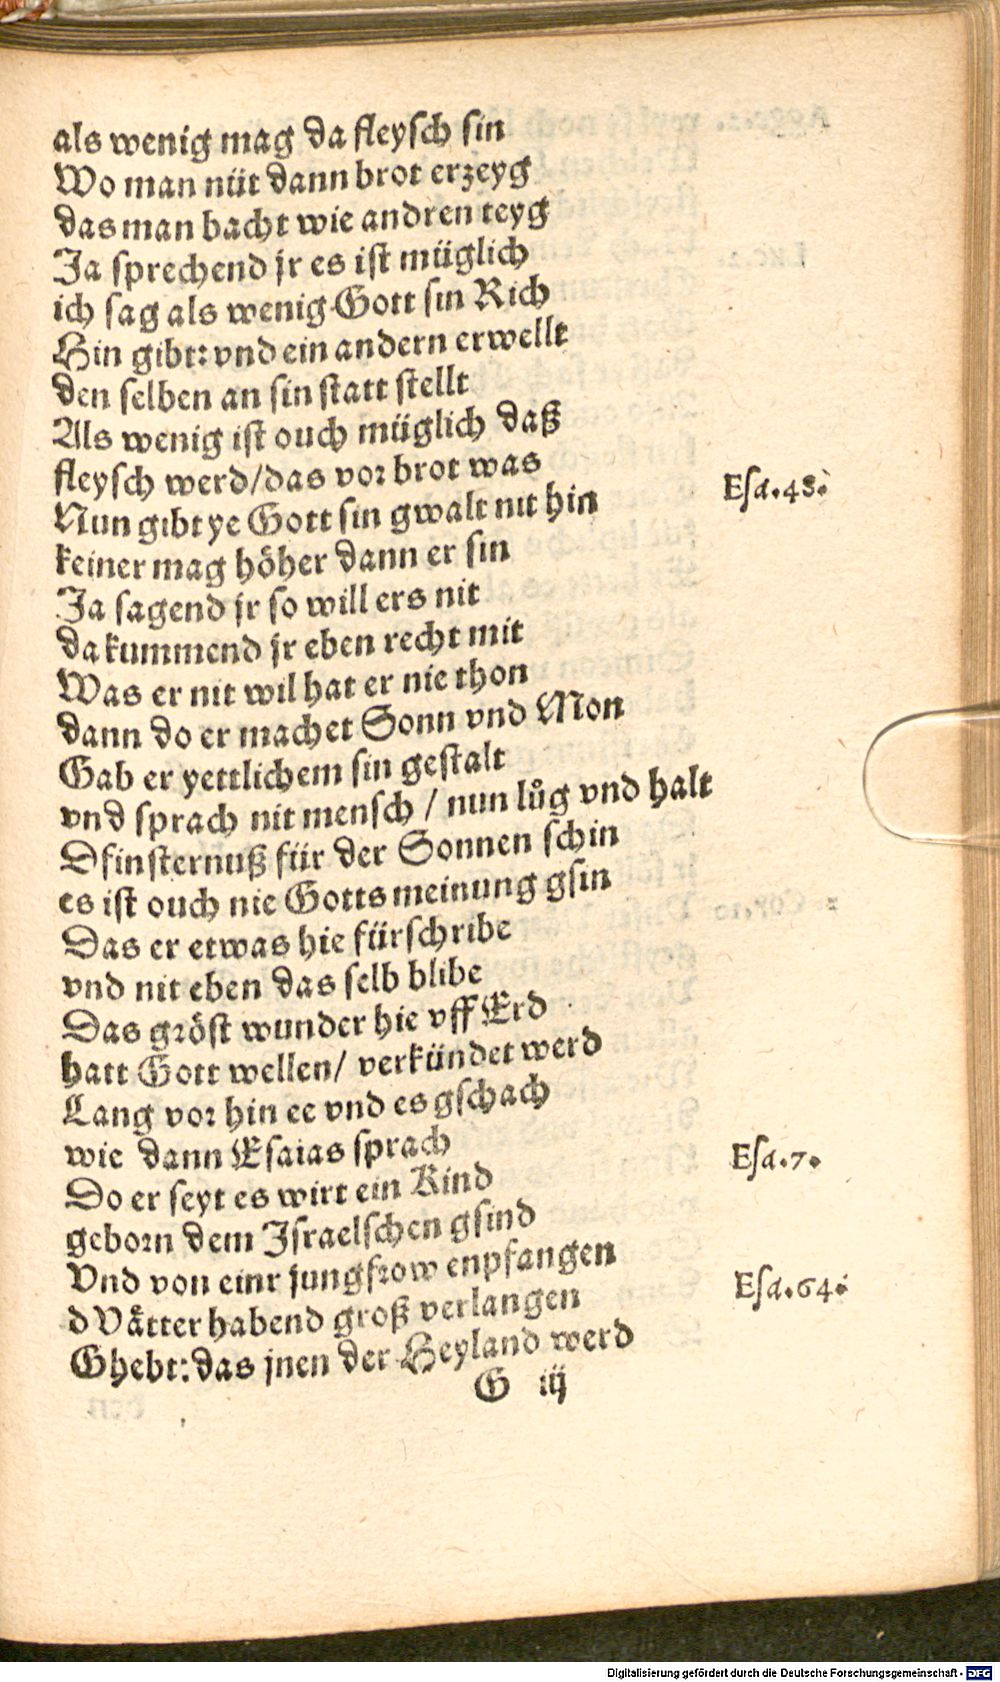 als wenig mag da fleysch sin
Wo man nüt dann brot erzeyg
das man bacht wie andren teyg
Ja sprechend jr es ist müglich
ich sag als wenig Gott sin Rich
Hin gibt: vnd ein andern erwellt
den selben an sin statt stellt
Als wenig ist ouch müglich daß
fleysch werd/das vor brot was
Esa.48.
Nun gibt ye Gott sin gwalt nit hin
keiner mag höher dann er sin
Ja sagend jr so will ers nit
da kummend jr eben recht mit
Was er nit wil hat er nie thon
dann do er machet Sonn vnd Mon
Gab er yettlichem sin gestalt
vnd sprach nit mensch / nun lůg vnd halt
Dfinsternuß für der Sonnen schin
es ist ouch nie Gotts meinung gsin
Das er etwas hie fürschribe
vnd nit eben das selb blibe
Das gröst wunder hie vff Erd
hatt Gott wellen/ verkündet werd
Lang vor hin ee vnd es gschach
wie dann Esaias sprach
Esa.7.
Do er seyt es wirt ein Kind
geborn dem Israelschen gsind
Vnd von einr jungfrow enpfangen
Esa.64.
d Vätter habend groß verlangen
Ghebt: das jnen der Heyland werd
G iij
Digitalisierung gefördert durch die Deutsche Forschungsgemeinschaft - DFG